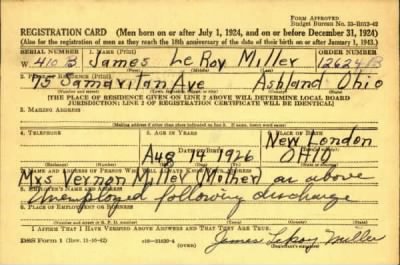 FORM APPROVED
Budget Bureau No. 33-R113-42
REGISTRATION CARD (Men born on or after July 1, 1924, and on or before December 31, 1924)
(Also for the registration of men as they reach the 18th anniversary of the date of their birth on or after January 1, 1943.)
SERIAL NUMBER 1. NAME (Print) ORDER NUMBER
W 410 B James LeRoy Miller 12624
(First) (Middle) (Last)
2. PLACE OF RESIDENCE (Print)
75 Samaritan Ave Ashland Ohio
[THE PLACE OF RESIDENCE GIVEN ON LINE 2 ABOVE WILL DETERMINE LOCAL BOARD
JURISDICTION; LINE 2 OF REGISTRATION CERTIFICATE WILL BE IDENTICAL]
3. MAILING ADDRESS
[Mailing address if other than place indicated on line 2. If same, insert word same]
4. TELEPHONE 5. AGE IN YEARS 6. PLACE OF BIRTH
New London
DATE OF BIRTH
Aug 19 1926 OHIO
7. NAME AND ADDRESS OF PERSON WHO WILL ALWAYS KNOW YOUR ADDRESS
Mrs Vernon Miller (Mother) as above
8. EMPLOYER'S NAME AND ADDRESS
Unemployed following discharge
9. PLACE OF EMPLOYMENT OR BUSINESS
I AFFIRM THAT I HAVE VERIFIED ABOVE ANSWERS AND THAT THEY ARE TRUE.
DSS Form 1 (Rev. 11-16-42) 16-21630-4 (OVER)
James LeRoy Miller